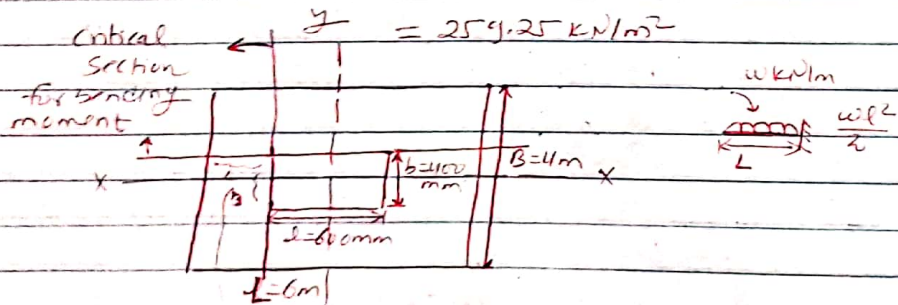 y = 259.25 kN/m²
Critical
Section
for bending
moment
w kN/m
wl²/2
L
B=4m
b=400
mm
x x
l=600mm
L=6m